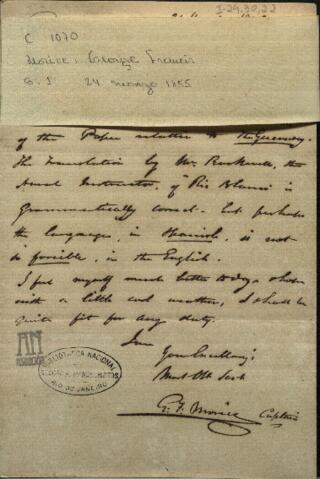 I-29,30,22
C 1070
Morice, George Francis
S. l. 24 março 1855
of the Paper relative to the Guernsey.
The Translation by Mr. the
Naval Instructor, of Rio Blanco is
Grammatically correct - but perhaps
the language, in Spanish, is not
so forcible, as in the English.
I feel myself much better today & when
with a little cool weather, I shall be
quite fit for any duty.
I am
Your Excellency's
Most Obt Servt
G. F. Morice Captain
AN
BIBLIOTHECA NACIONAL
RIO DE JANEIRO